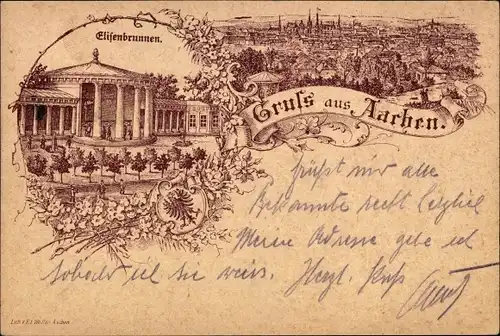 Elisenbrunnen.
Gruss aus Aachen.
grüßt mir alle
Bekannte recht herzlich
Meine Adresse gebe ich
sobald ich sie weiss. Herzl. Kuss